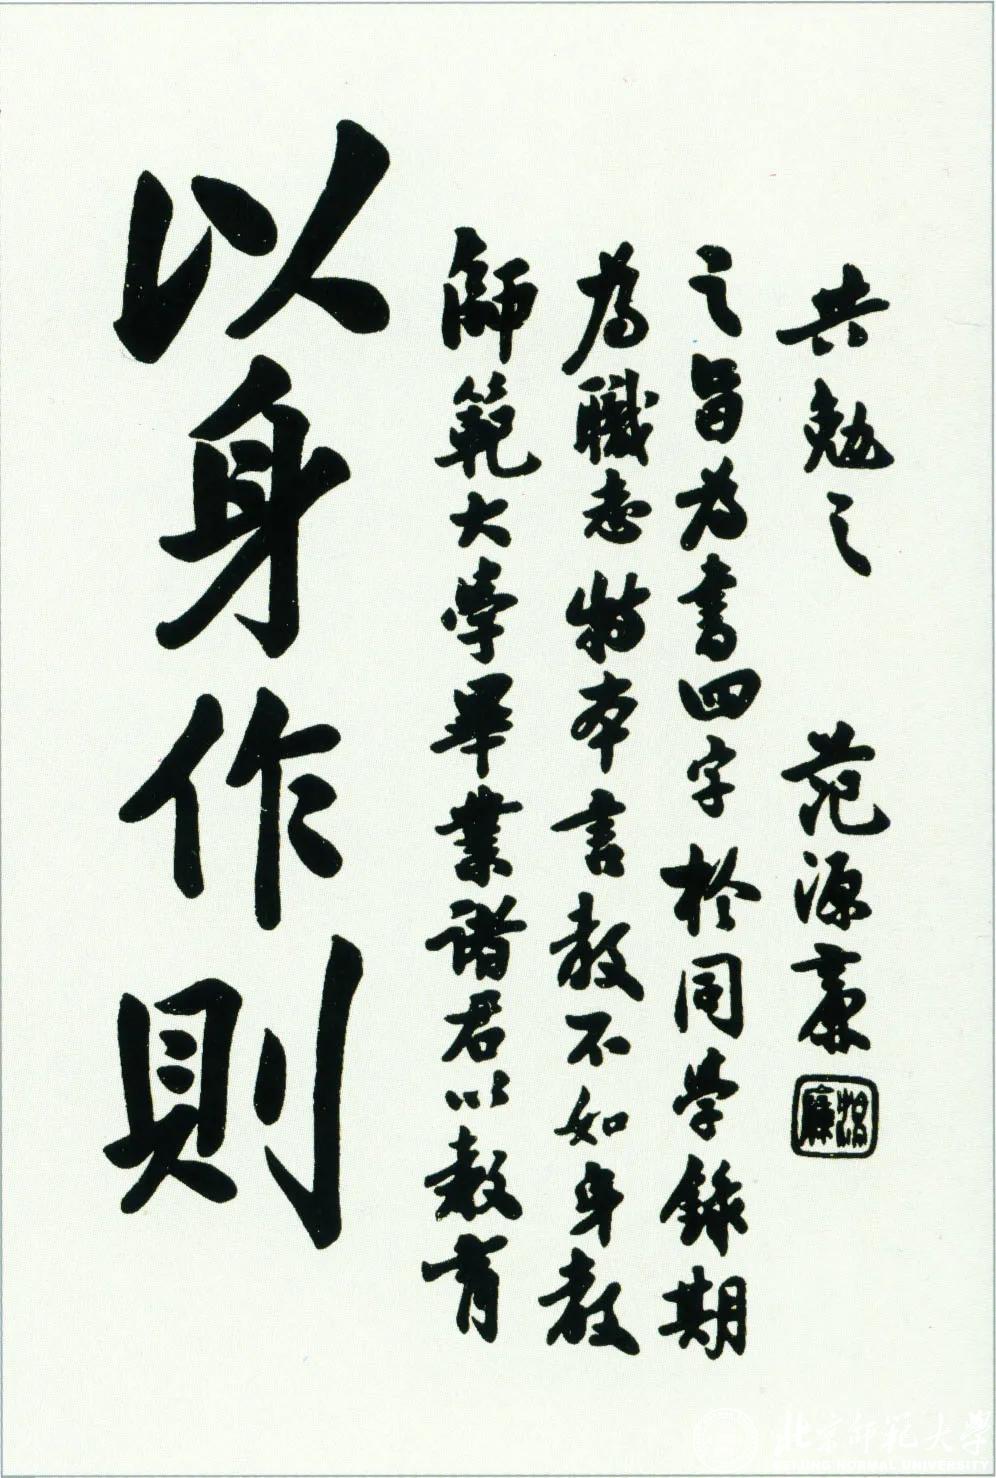 以身作則
師範大學畢業諸君以教育
為職志特本言教不如身教
之旨為書四字於同學錄期
共勉之 范源廉
源廉
北京師範大學
BEIJING NORMAL UNIVERSITY